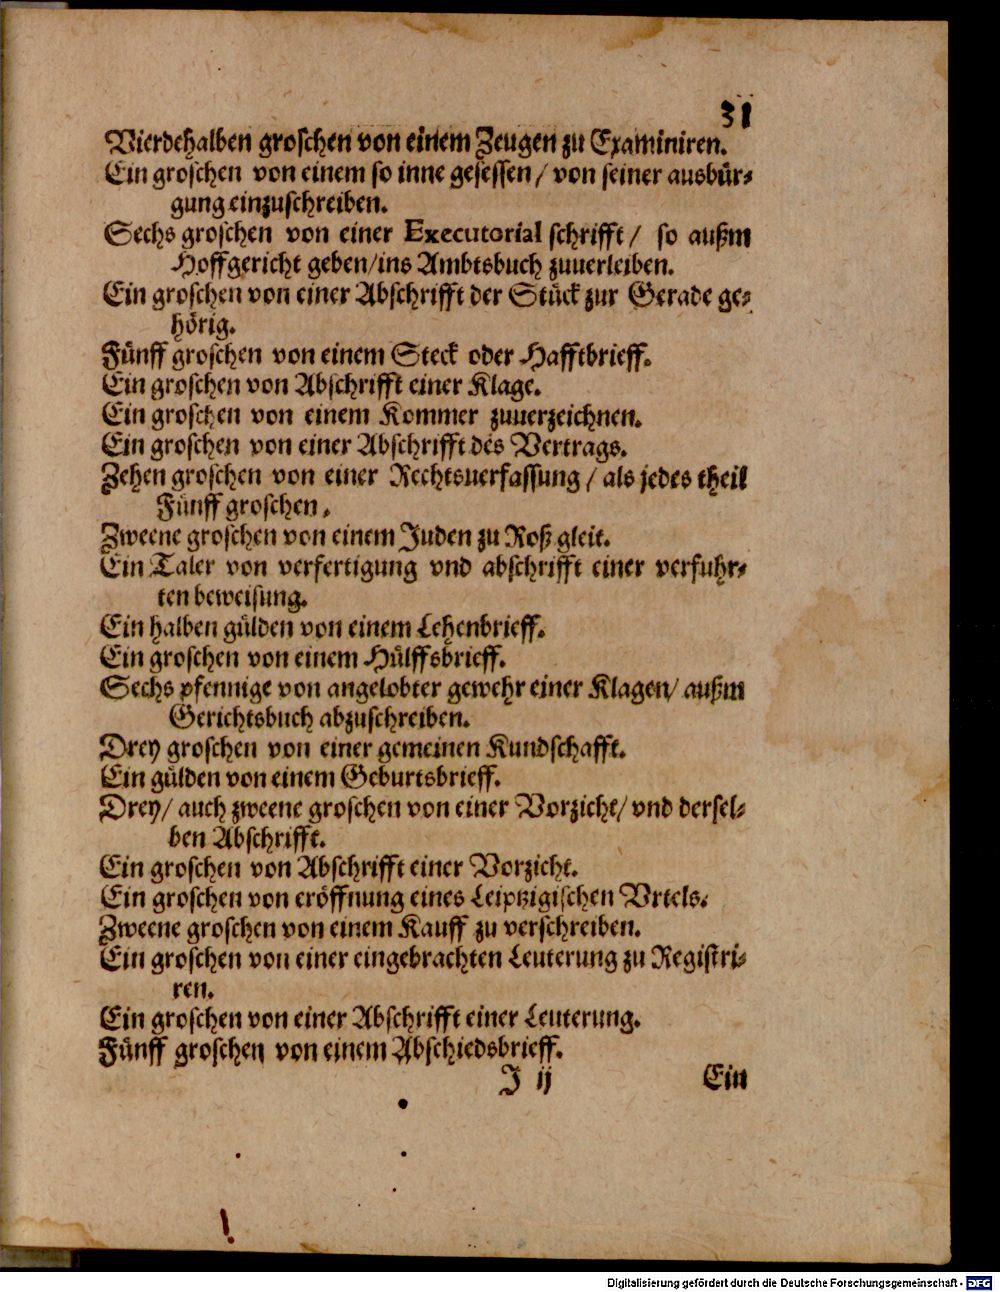 31
Vierdehalben groschen von einem Zeugen zu Examiniren.
Ein groschen von einem so inne gesessen / von seiner ausbür-
gung einzuschreiben.
Sechs groschen von einer Executorial schrifft / so außm
Hoffgericht geben/ins Ambtsbuch zuuerleiben.
Ein groschen von einer Abschrifft der Stück zur Gerade ge-
hörig.
Fünff groschen von einem Steck oder Hafftbrieff.
Ein groschen von Abschrifft einer Klage.
Ein groschen von einem Kommer zuuerzeichnen.
Ein groschen von einer Abschrifft des Vertrags.
Zehen groschen von einer Rechtsuerfassung / als jedes theil
Fünff groschen.
Zweene groschen von einem Juden zu Roß gleit.
Ein Taler von verfertigung vnd abschrifft einer verfuhr-
ten beweisung.
Ein halben gülden von einem Lehenbrieff.
Ein groschen von einem Hülffsbrieff.
Sechs pfennige von angelobter gewehr einer Klagen/ außm
Gerichtsbuch abzuschreiben.
Drey groschen von einer gemeinen Kundschafft.
Ein gülden von einem Geburtsbrieff.
Drey/ auch zweene groschen von einer Vorzicht/ vnd dersel-
ben Abschrifft.
Ein groschen von Abschrifft einer Vorzicht.
Ein groschen von eröffnung eines Leiptzigischen Vrtels.
Zweene groschen von einem Kauff zu verschreiben.
Ein groschen von einer eingebrachten Leuterung zu Registri-
ren.
Ein groschen von einer Abschrifft einer Leuterung.
Fünff groschen von einem Abschiedsbrieff.
J ij Ein
Digitalisierung gefördert durch die Deutsche Forschungsgemeinschaft - DFG